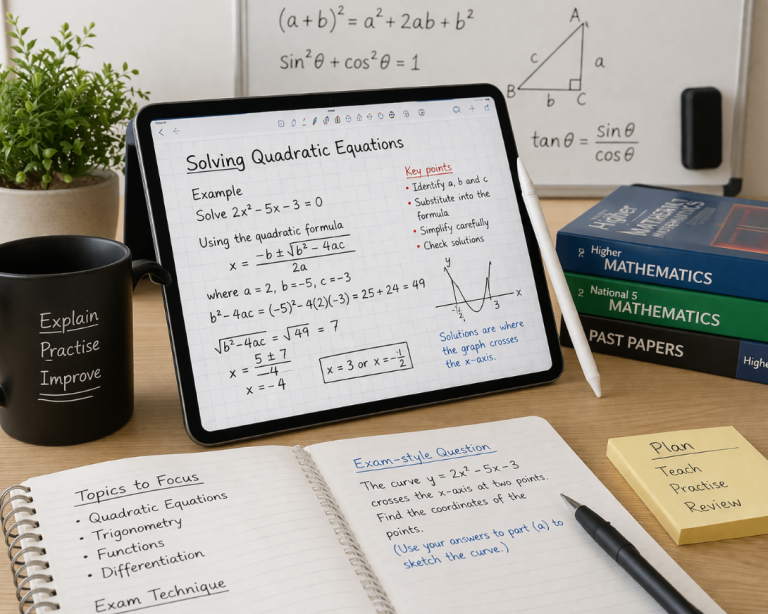 (a + b)² = a² + 2ab + b²
sin²θ + cos²θ = 1
A
c
a
B
b
C
tan θ = sin θ / cos θ
Solving Quadratic Equations
Example
Solve 2x² - 5x - 3 = 0
Using the quadratic formula
x = -b ± √b² - 4ac / 2a
where a = 2, b = -5, c = -3
b² - 4ac = (-5)² - 4(2)(-3) = 25 + 24 = 49
√b² - 4ac = √49 = 7
x = 5 ± 7 / -4
x = -4
x = 3 or x = -1/2
Key points
• Identify a, b and c
• Substitute into the
formula
• Simplify carefully
• Check solutions
y
x
-1/2
3
Solutions are where
the graph crosses
the x-axis.
Explain
Practise
Improve
Higher
MATHEMATICS
Higher
MATHEMATICS
National 5
MATHEMATICS
PAST PAPERS
Topics to Focus
• Quadratic Equations
• Trigonometry
• Functions
• Differentiation
Exam Technique
Exam-style Question
The curve y = 2x² - 5x - 3
crosses the x-axis at two points.
Find the coordinates of the
points.
(Use your answers to part (a) to
sketch the curve.)
Plan
Teach
Practise
Review